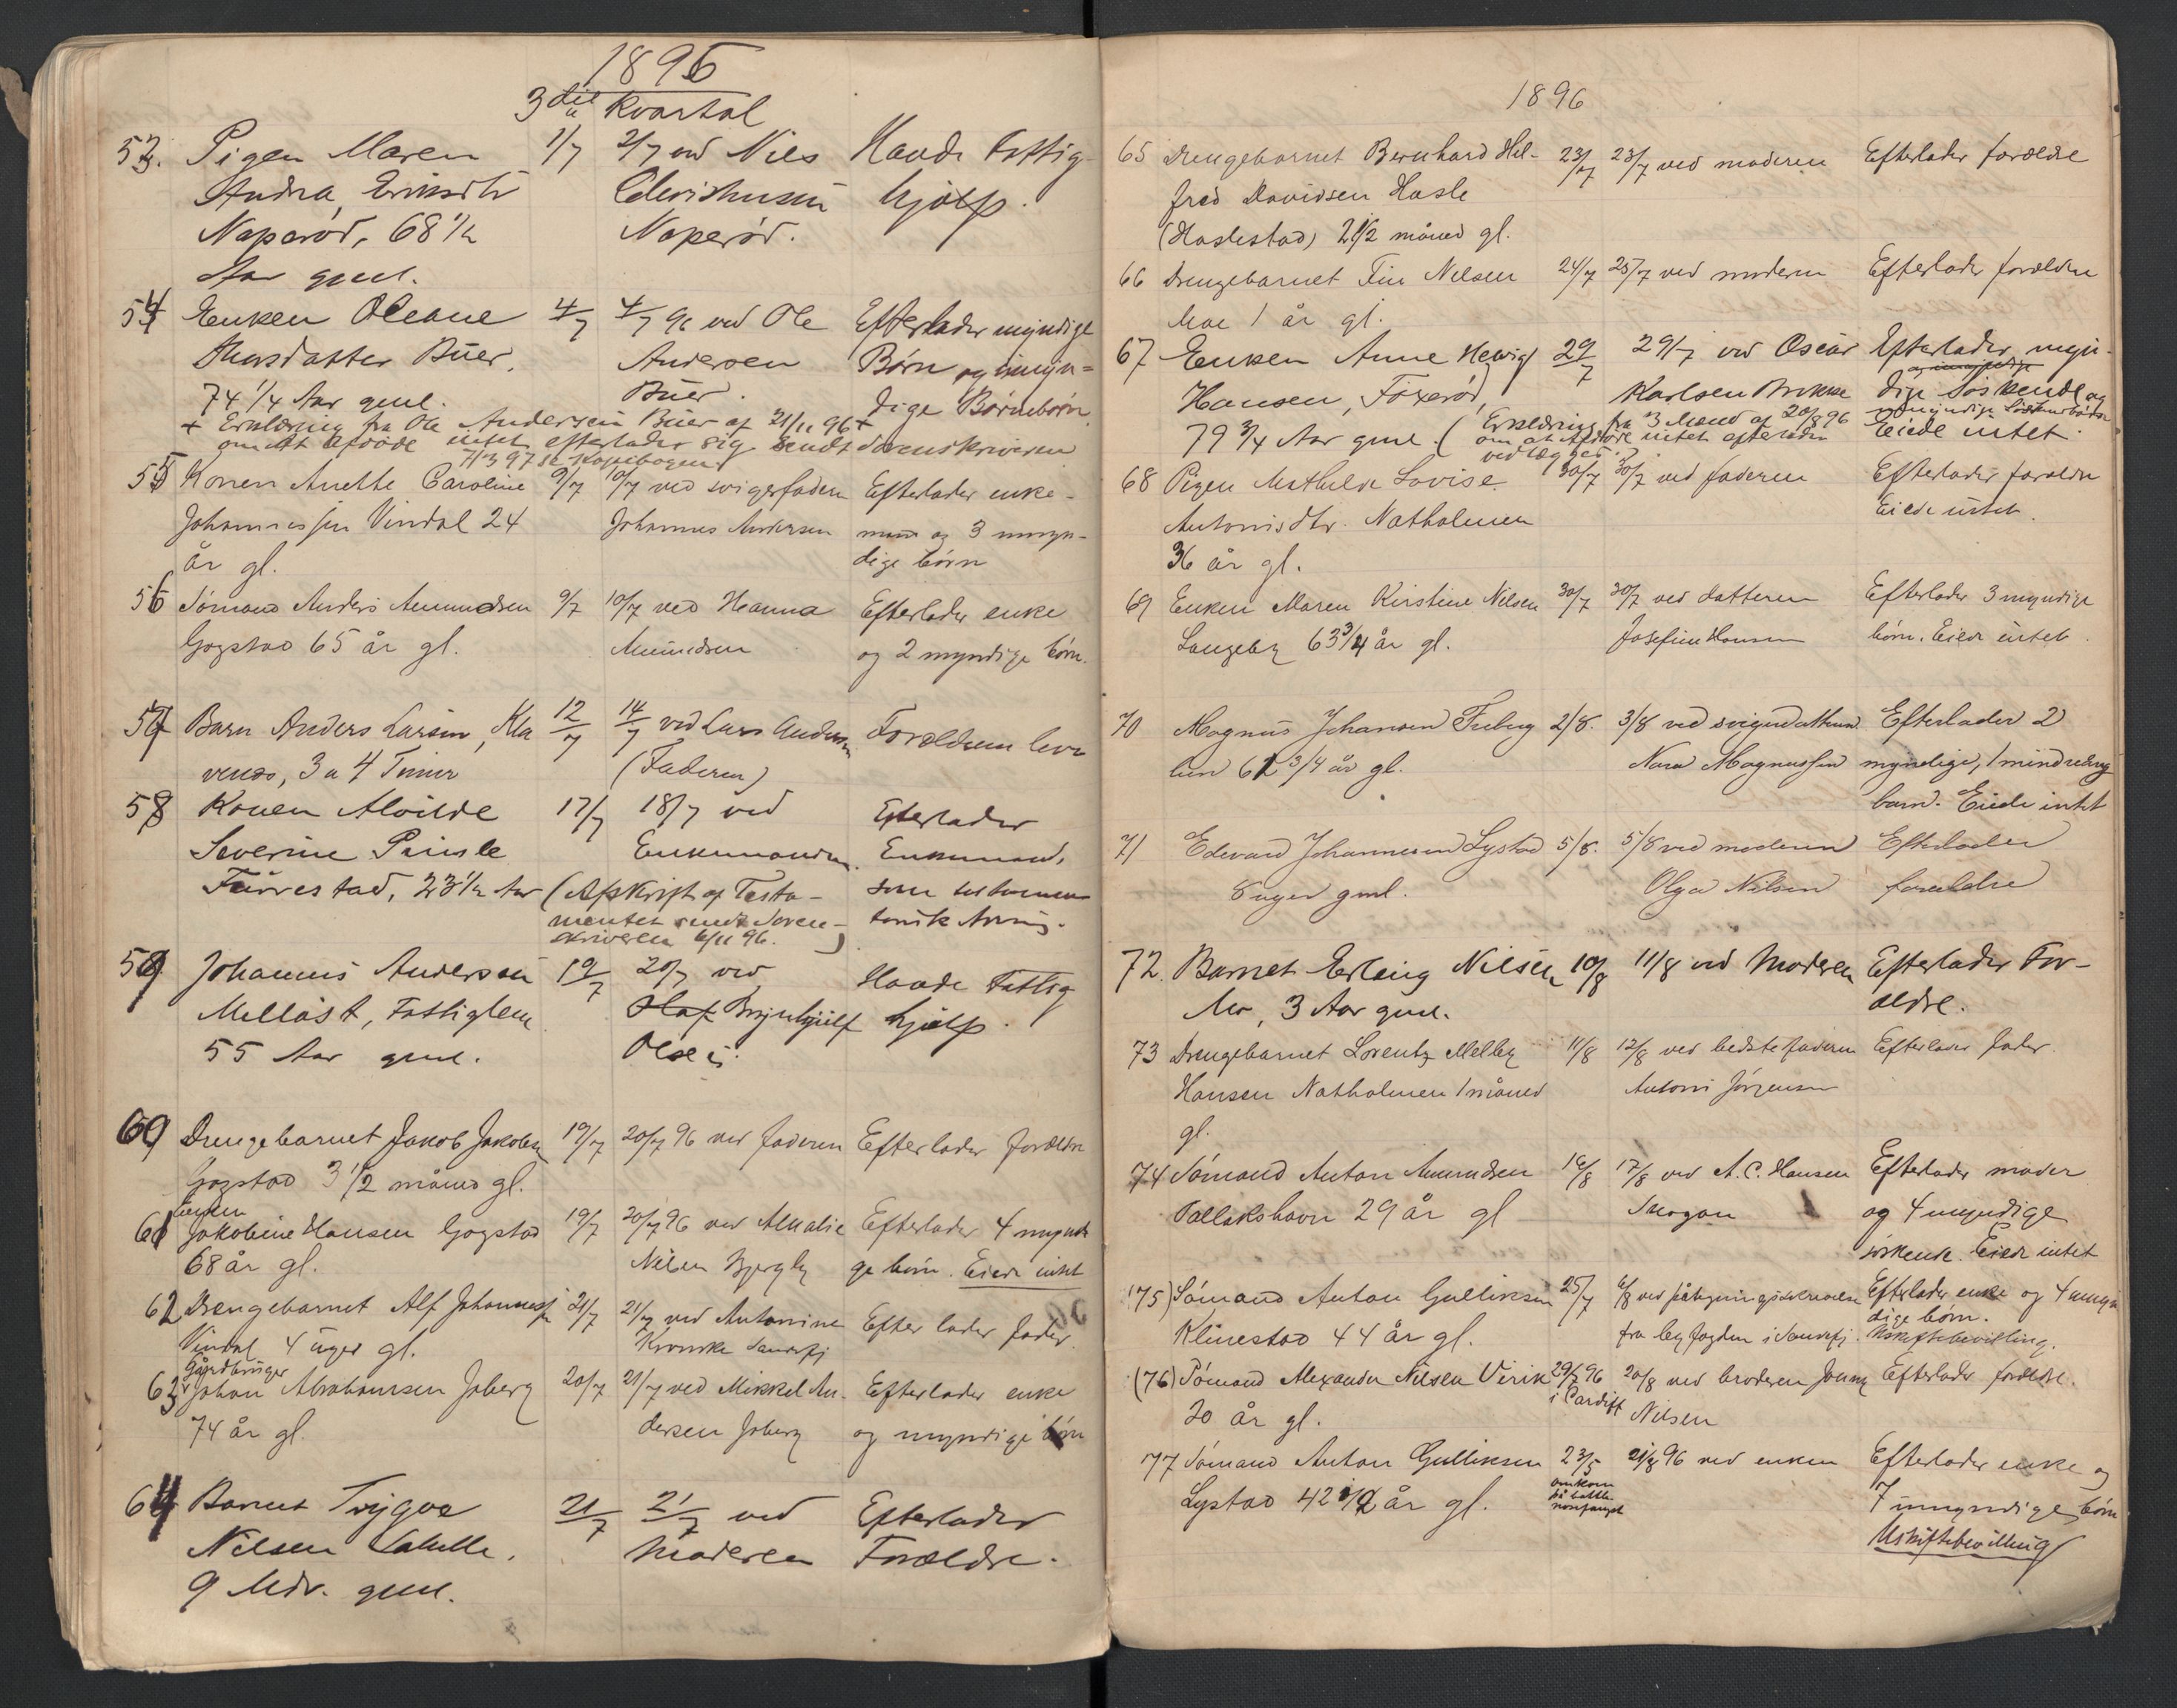 1896
3die Kvartal
53. Pigen Maren 1/7 2/7 ved Nils Havde Fattig-
Andrea Eriksdtr hjælp.
Naperød, 68 1/2 Naperød.
Aar gml.
54 Enken Oleane 4/7 4/7 96 ved Ole Efterlader myndige
Thorsdatter Buer, Andersen Børn og umyn=
74 1/4 Aar gml. Buer. dige Børnebørn
+ Erklæring fra Ole Andersen Buer af 21/11 96 +
om at afdøde intet efterlader sig sendt Sorenskriveren
7/3 97 se Kopibogen
55 Konen Anette Caroline 9/7 10/7 ved svigerfaderen Efterlader enke-
Johannessen Vindal 24 Johannes Andersen mand og 3 umyn-
år gl. dige børn
56 Sømand Anders Amundsen 9/7 10/7 ved Hanna Efterlader enke
Gogstad 65 år gl. Amundsen og 2 myndige børn.
57 Barn Anders Larsen, Kla 12/7 14/7 ved Lars Andersen Forældrene lever
venes, 3 a 4 Timer (Faderen)
58 Konen Alvilde 17/7 18/7 ved Efterlader
Severine Enkemanden Enkemand,
23 1/2 Aar (Afskrift af Testa- som testamen-
mentet sendt Soren- tarisk Arving.
skriveren 6/11 96.)
59 Johannes Andersen 19/7 20/7 ved Havde Fattig
Felløst, Fattiglem Olaf Brynhjulf hjælp.
55 Aar gml. Olsen.
60 Drengebarnet Jakob Jakobsen 19/7 20/7 96 ved faderen Efterlader forældre
Gogstad 3 1/2 måned gl.
Enken
61 Jakobine Hansen Gogstad 19/7 20/7 96 ved Amalie Efterlader 4 myndi
68 år gl. Nilsen Bjergby ge børn. Eiede intet
62 Drengebarnet Alf Johannessen 21/7 21/7 ved Antonine Efterlader fader.
Vindal 4 uger gl. Sandefj
Gårdbruger
63 Johan Abrahamsen Joberg 20/7 21/7 ved Mikkel An- Efterlader enke
74 år gl. dersen Joberg og myndige børn
64 Barnet Trygve 21/7 21/7 ved Efterlader
Nilsen Moderen Forældre.
9 Mdr. gml.
1896
65 Drengebarnet Bernhard Hil- 23/7 23/7 ved moderen Efterlader forældre
fred Davidsen Hasle
(Haslestad) 2 1/2 måned gl.
66 Drengebarnet Fin Nilsen 24/7 25/7 ved moderen Efterlader forældre
Moe 1 år gl.
67 Enken Anne Helvig 29/7 29/7 ved Oscar Efterlader myn-
og umyndige
Hansen, Foxerød, Karlsen Brekke dige Søskende og
umyndige Søskendebørn
79 3/4 Aar gml. (Erklæring fra 3 Mænd af 20/8 96 Eiede intet.
om at Afdøde intet efterlader
vedlægges.)
68 Pigen Mathilde Lovise 30/7 30/7 ved faderen Efterlader forældre
Antonisdtr. Natholmen Eiede intet.
36 år gl.
69 Enken Maren Kirstine Nilsen 30/7 30/7 ved datteren Efterlader 3 myndige
Langeby 63 3/4 år gl. Josefine Hansen børn. Eiede intet.
70 Magnus Johansen Freberg 2/8. 3/8 ved svigerdatteren Efterlader 2
len 62 3/4 år gl. Nora Magnussen myndige, 1 mindreårig
barn. Eiede intet
71 Edvard Johannesen Lystad 5/8. 5/8 ved moderen Efterlader
8 uger gml. Olga Nilsen forældre
72. Barnet Erling Nilsen 10/8 11/8 ved Moderen Efterlader For-
Mo, 3 Aar gml. ældre.
73 Drengebarnet Lorentz Melby 11/8 12/8 ved bedstefaderen Efterlader fader.
Hansen Natholmen 1 måned Antoni Jørgensen
gl.
74 Sømand Anton Amundsen 16/8 17/8 ved A. C. Hansen Efterlader moder
Tallakshavn 29 år gl Skogan og 4 myndige
søskende. Eiede intet
(75) Sømand Anton Gulliksen 25/7 6/8 ved påtegningsskrivelse Efterlader enke og 4 umyn
dige børn.
Klinestad 44 år gl. fra byfogden i Sandefj. Uskiftebevilling.
(76) Sømand Alexander Nilsen Virik 29/7 96 20/8 ved broderen Johnny Efterlader forældre.
20 år gl. i Cardiff Nilsen
77 Sømand Anton Gulliksen 23/5 21/8 96 ved enken Efterlader enke og
Lystad 42 1/2 år gl. omkom 7 umyndige børn
på bottle-
nosefangst
Uskiftebevilling